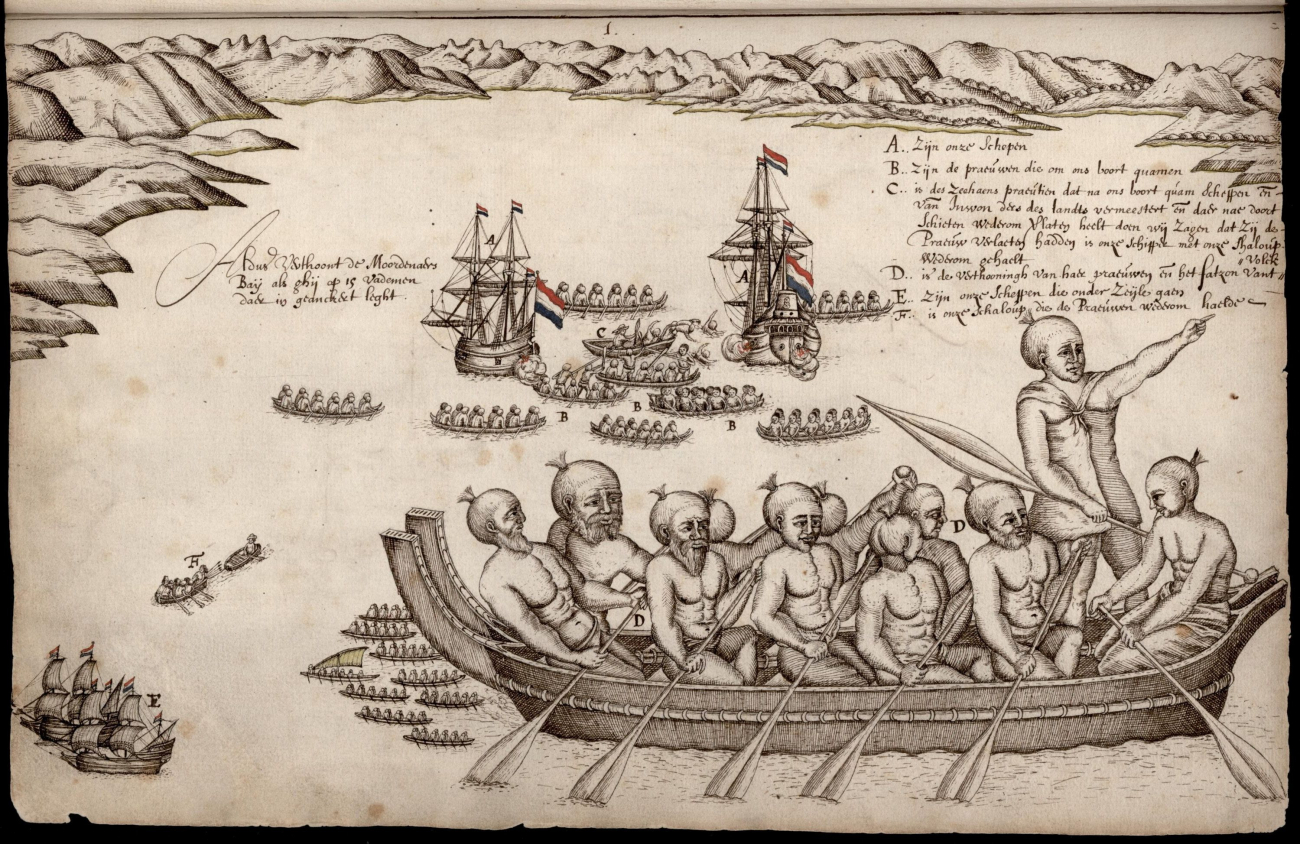 1.
A.. Zijn onze Schepen
B.. Zijn de praeuwen die om ons boort quamen
C.. is des Zeehaens praeutien dat na ons boort quam Scheppen en
van Inwon ders des landts vermeestert en daer nae door't
Schieten Wederom Verlaten heeft doen wij Zagen dat Zij de
Praeuw Verlaeten hadden is onze Schipper met onze Chaloup
Wederom gehaelt Volck
D.. is de Verthooningh van haer praeuwen en het fatzon Vant
E.. Zijn onze Scheppen die onder Zeijle gaen
F.. is onze Schaloup die de Praeuwen Wederom haelde
Aldus Verthoont de Moordenaers
Baij als ghij op 15 Vademen
daer in geanckert leght
A
A
C
B
B
B
D
D
F
E